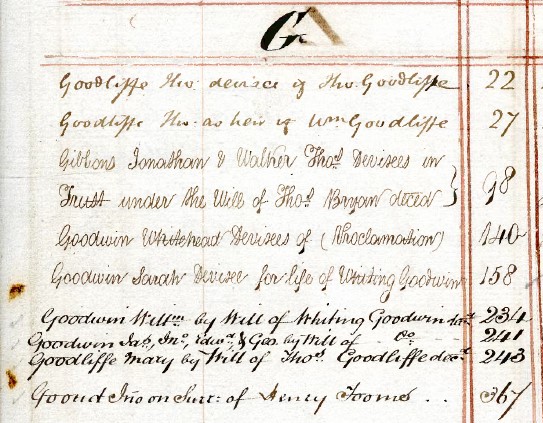 G
Goodliffe Tho. devisee of Tho. Goodliffe 22
Goodliffe Tho. as heir of Wm Goodliffe 27
Gibbons Jonathan & Walker Thos. Devisees in
Trust under the Will of Thos. Bryan deced } 98
Goodwin Whitehead Devisees of (Proclamation) 140
Goodwin Sarah Devisee for life of Whiting Goodwin 158
Goodwin Willm by Will of Whiting Goodwin decd. 234
Goodwin Jas., Jno., Edwd. & Geo. by Will of Do. 241
Goodliffe Mary by Will of Thos. Goodliffe decd. 243
Jno on Surr: of Henry Tooms .. 367